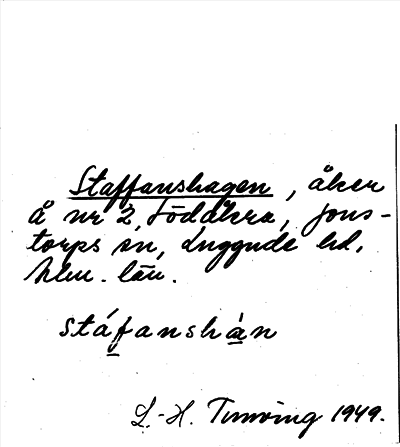 Staffanshagen, åker
å nr 2, Södåkra, Jons-
torps sn, Luggude hd,
Mlm. län.
stáfanshàn
L.-H. Tunving 1949.